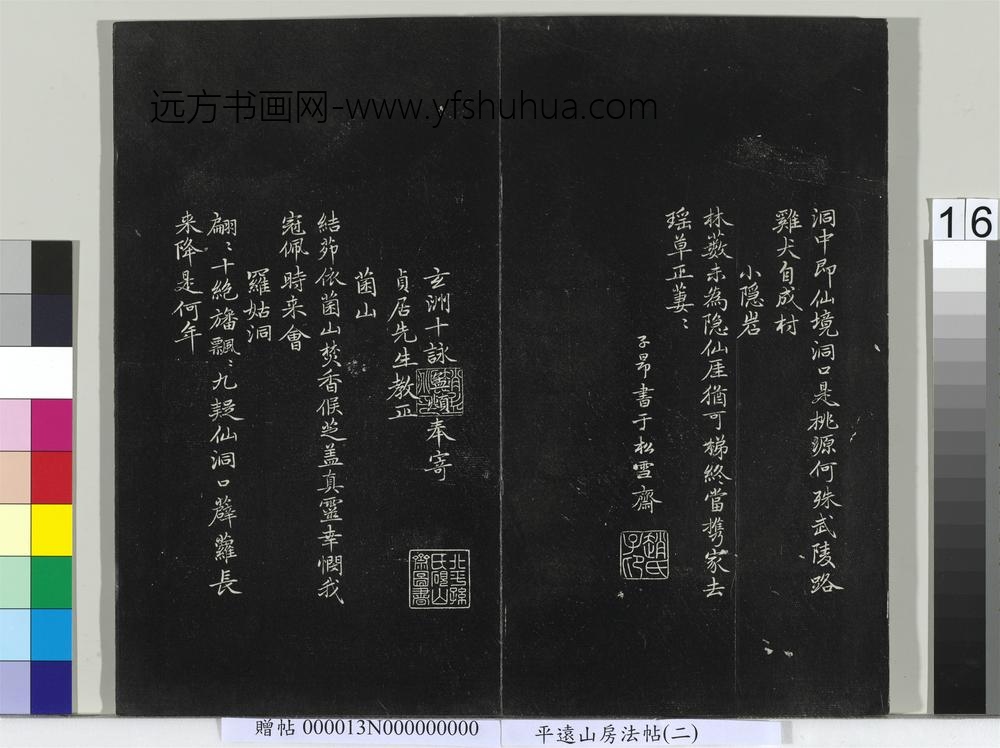 远方书画网-www.yfshuhua.com
洞中即仙境洞口是桃源何殊武陵路
雞犬自成村
小隠岩
林藪未為隐仙厓猶可梯終當攜家去
瑶草正萋〻
子昂書于松雪齋
趙氏子印
玄洲十詠
奉寄
貞居先生教正
菌山
結茆依菌山焚香候芝盖真靈幸憫我
冠佩時来會
羅姑洞
翩〻十絶旛飄〻九疑仙洞口薜蘿長
来降是何年
北平孫氏硯山齋圖書
16
贈帖 000013N000000000
平遠山房法帖(二)